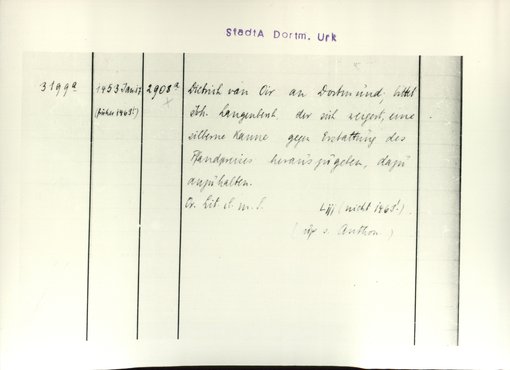 StadtA Dortm. Urk
3199a 1453 Jan 17 2908a Dietrich van Oir an Dortmund; bittet
(früher 1463!) Joh. Langenbeck, der sich weigert, eine
silberne Kanne gegen Erstattung des
Pfandpreises herauszugeben, dazu
anzuhalten.
Or. Lit. cl. m. S. Liij (nicht 1463!)
s. Anthon.)